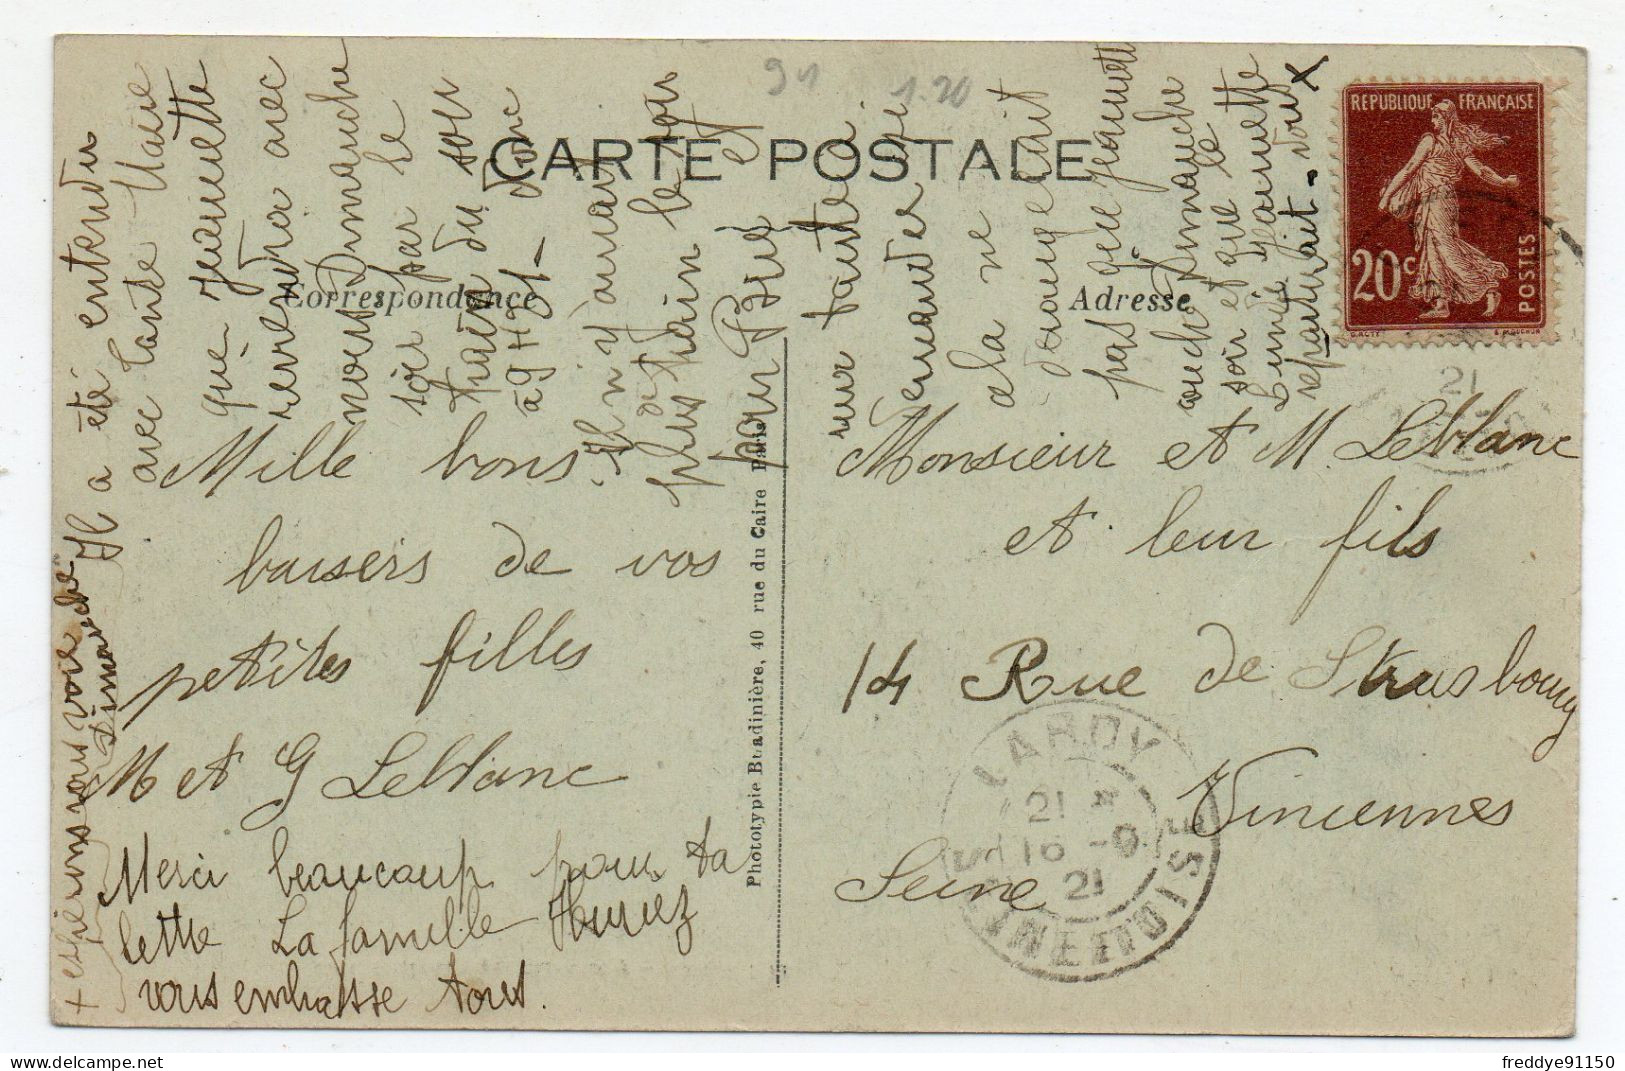 91 1.20
CARTE POSTALE
Correspondance
Adresse
REPUBLIQUE FRANÇAISE
20c
POSTES
Mille bons
baisers de vos
petites filles
M et G Leblanc
Merci beaucoup pour ta
lettre La famille
vous embrasse tous.
Monsieur et M. Leblanc
et leur fils
14 Rue de Strasbourg
Vincennes
Seine
LARDY
21 *
16 - 9
21
SEINE-ET-OISE
Photototypie Bouadinière, 40 rue du Caire Paris
Il a été entendu
avec tante Marie
que Jeannette
reviendra avec
nous Dimanche
soir par le
train du soir
à 9 H 51 - Donc
Il n'y aurait
plus de train le soir
pour Brie et
sur tante
a la ne
dérangerait
pas que Jeannette
couche Dimanche
soir et que le
Lundi Jeannette
repartirait - vous X
+ espérons vous voir
Dimanche
freddye91150